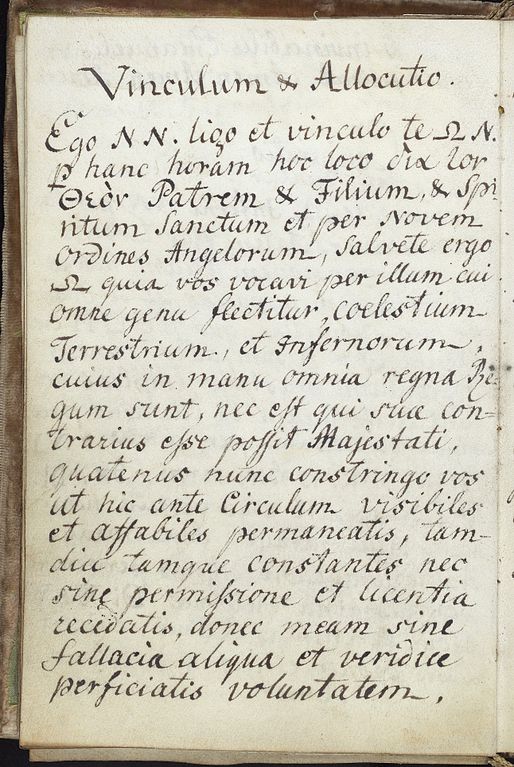 Vinculum & Allocutio.
Ego N N. ligo et vinculo te Ω N.
p hanc horam hoc loco δια τον
Θεὸν Patrem & Filium, & Spi-
ritum Sanctum et per Novem
Ordines Angelorum, Salvete ergo
Ω quia vos vocavi per illum cui
omne genu flectitur, coelestium
Terrestrium, et Infernorum,
cuius in manu omnia regna Re-
gum sunt, nec est qui suae con-
trarius esse possit Majestati,
quatenus nunc constringo vos
ut hic ante Circulum visibiles
et affabiles permaneatis, tam-
diu tamque constantes nec
sine permissione et licentia
recedatis, donec meam sine
fallacia aliqua et veridice
perficiatis voluntatem.